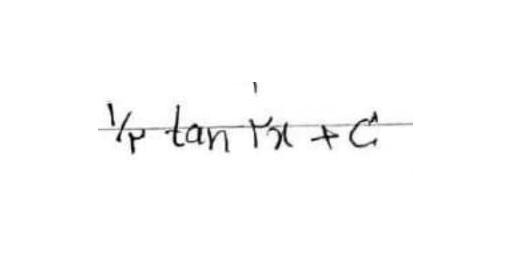 ۱/۲ tan ۲x + C